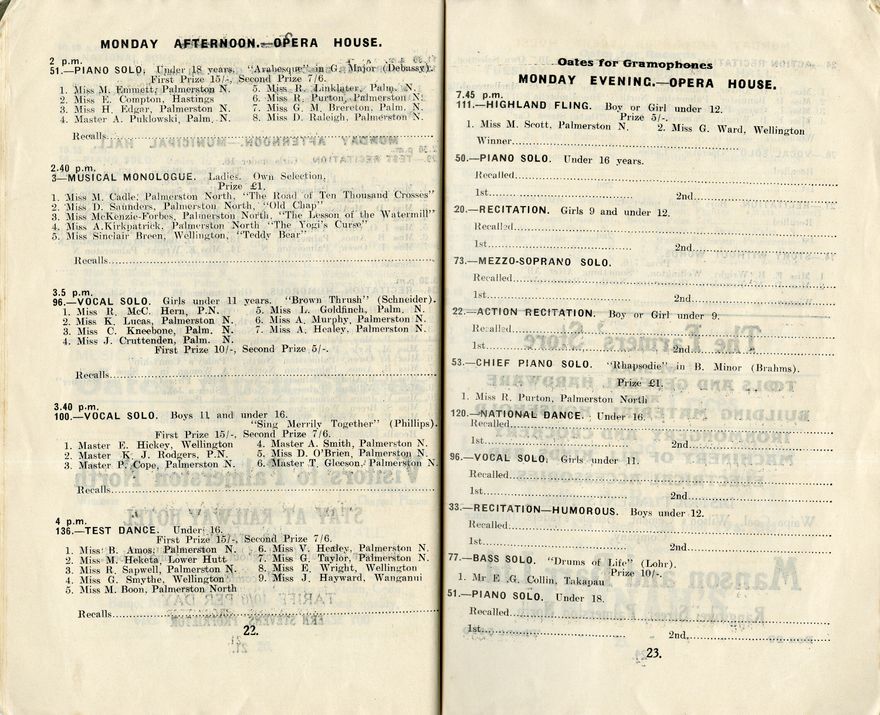 MONDAY AFTERNOON.—OPERA HOUSE.
2 p.m.
51.—PIANO SOLO. Under 18 years. "Arabesque" in G. Major (Debassy).
First Prize 15/-, Second Prize 7/6.
1. Miss M. Emmett, Palmerston N.
2. Miss E. Compton, Hastings
3. Miss H. Edgar, Palmerston N.
4. Master A. Puklowski, Palm. N.
5. Miss R. Linklater, Palm. N.
6. Miss R. Purton, Palmerston N.
7. Miss G. M. Brereton, Palm. N.
8. Miss D. Raleigh, Palmerston N.
Recalls
2.40 p.m.
3—MUSICAL MONOLOGUE. Ladies. Own Selection,
Prize £1.
1. Miss M. Cadle, Palmerston North, "The Road of Ten Thousand Crosses"
2. Miss D. Saunders, Palmerston North, "Old Chap"
3. Miss McKenzie-Forbes, Palmerston North, "The Lesson of the Watermill"
4. Miss A.Kirkpatrick, Palmerston North "The Yogi's Curse"
5. Miss Sinclair Breen, Wellington, "Teddy Bear"
Recalls
3.5 p.m.
96.—VOCAL SOLO. Girls under 11 years. "Brown Thrush" (Schneider).
1. Miss R. McC. Hern, P.N.
2. Miss K. Lucas, Palmerston N.
3. Miss C. Kneebone, Palm. N.
4. Miss J. Cruttenden, Palm. N.
5. Miss L. Goldfinch, Palm, N.
6. Miss A. Murphy, Palmerston N.
7. Miss A. Healey, Palmerston N.
First Prize 10/-, Second Prize 5/-.
Recalls
3.40 p.m.
100.—VOCAL SOLO. Boys 11 and under 16.
"Sing Merrily Together" (Phillips).
First Prize 15/-, Second Prize 7/6.
1. Master E. Hickey, Wellington
2. Master K. J. Rodgers, P.N.
3. Master P. Cope, Palmerston N.
4. Master A. Smith, Palmerston N.
5. Miss D. O'Brien, Palmerston N.
6. Master T. Gleeson, Palmerston N.
Recalls
4 p.m.
136.—TEST DANCE. Under 16.
First Prize 15/-, Second Prize 7/6.
1. Miss B. Amos, Palmerston N.
2. Miss M. Heketa, Lower Hutt
3. Miss R. Sapwell, Palmerston N.
4. Miss G. Smythe, Wellington
5. Miss M. Boon, Palmerston North
6. Miss V. Healey, Palmerston N.
7. Miss G. Taylor, Palmerston N.
8. Miss E. Wright, Wellington
9. Miss J. Hayward, Wanganui
Recalls
22.
Oates for Gramophones
MONDAY EVENING.—OPERA HOUSE.
7.45 p.m.
111.—HIGHLAND FLING. Boy or Girl under 12.
Prize 5/-.
1. Miss M. Scott, Palmerston N. 2. Miss G. Ward, Wellington
Winner
50.—PIANO SOLO. Under 16 years.
Recalled
1st 2nd
20.—RECITATION. Girls 9 and under 12.
Recalled
1st 2nd
73.—MEZZO-SOPRANO SOLO.
Recalled
1st 2nd
22.—ACTION RECITATION. Boy or Girl under 9.
Recalled
1st 2nd
53.—CHIEF PIANO SOLO. "Rhapsodie" in B. Minor (Brahms).
Prize £1.
1. Miss R. Purton, Palmerston North
120.—NATIONAL DANCE. Under 16.
Recalled
1st 2nd
96.—VOCAL SOLO. Girls under 11.
Recalled
1st 2nd
33.—RECITATION—HUMOROUS. Boys under 12.
Recalled
1st 2nd
77.—BASS SOLO. "Drums of Life" (Lohr).
Prize 10/-
1. Mr E .G. Collin, Takapau
51.—PIANO SOLO. Under 18.
Recalled
1st 2nd
23.